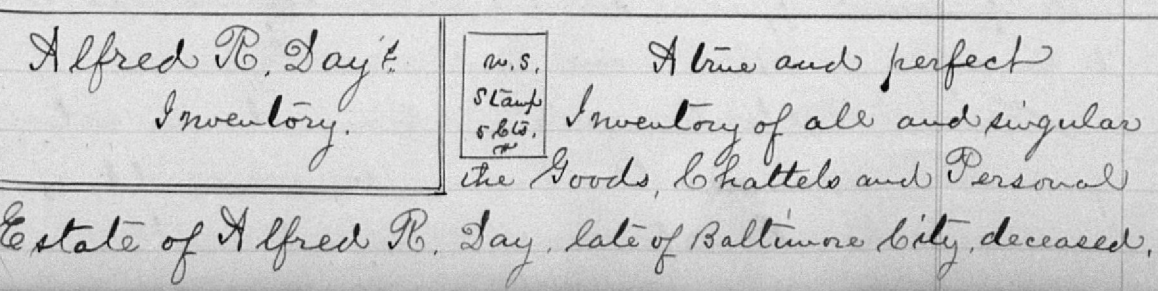 Alfred R. Day's
Inventory.
U.S.
Stamp
5 Cts.
A true and perfect
Inventory of all and singular
the Goods, Chattels and Personal
Estate of Alfred R. Day, late of Baltimore City, deceased.